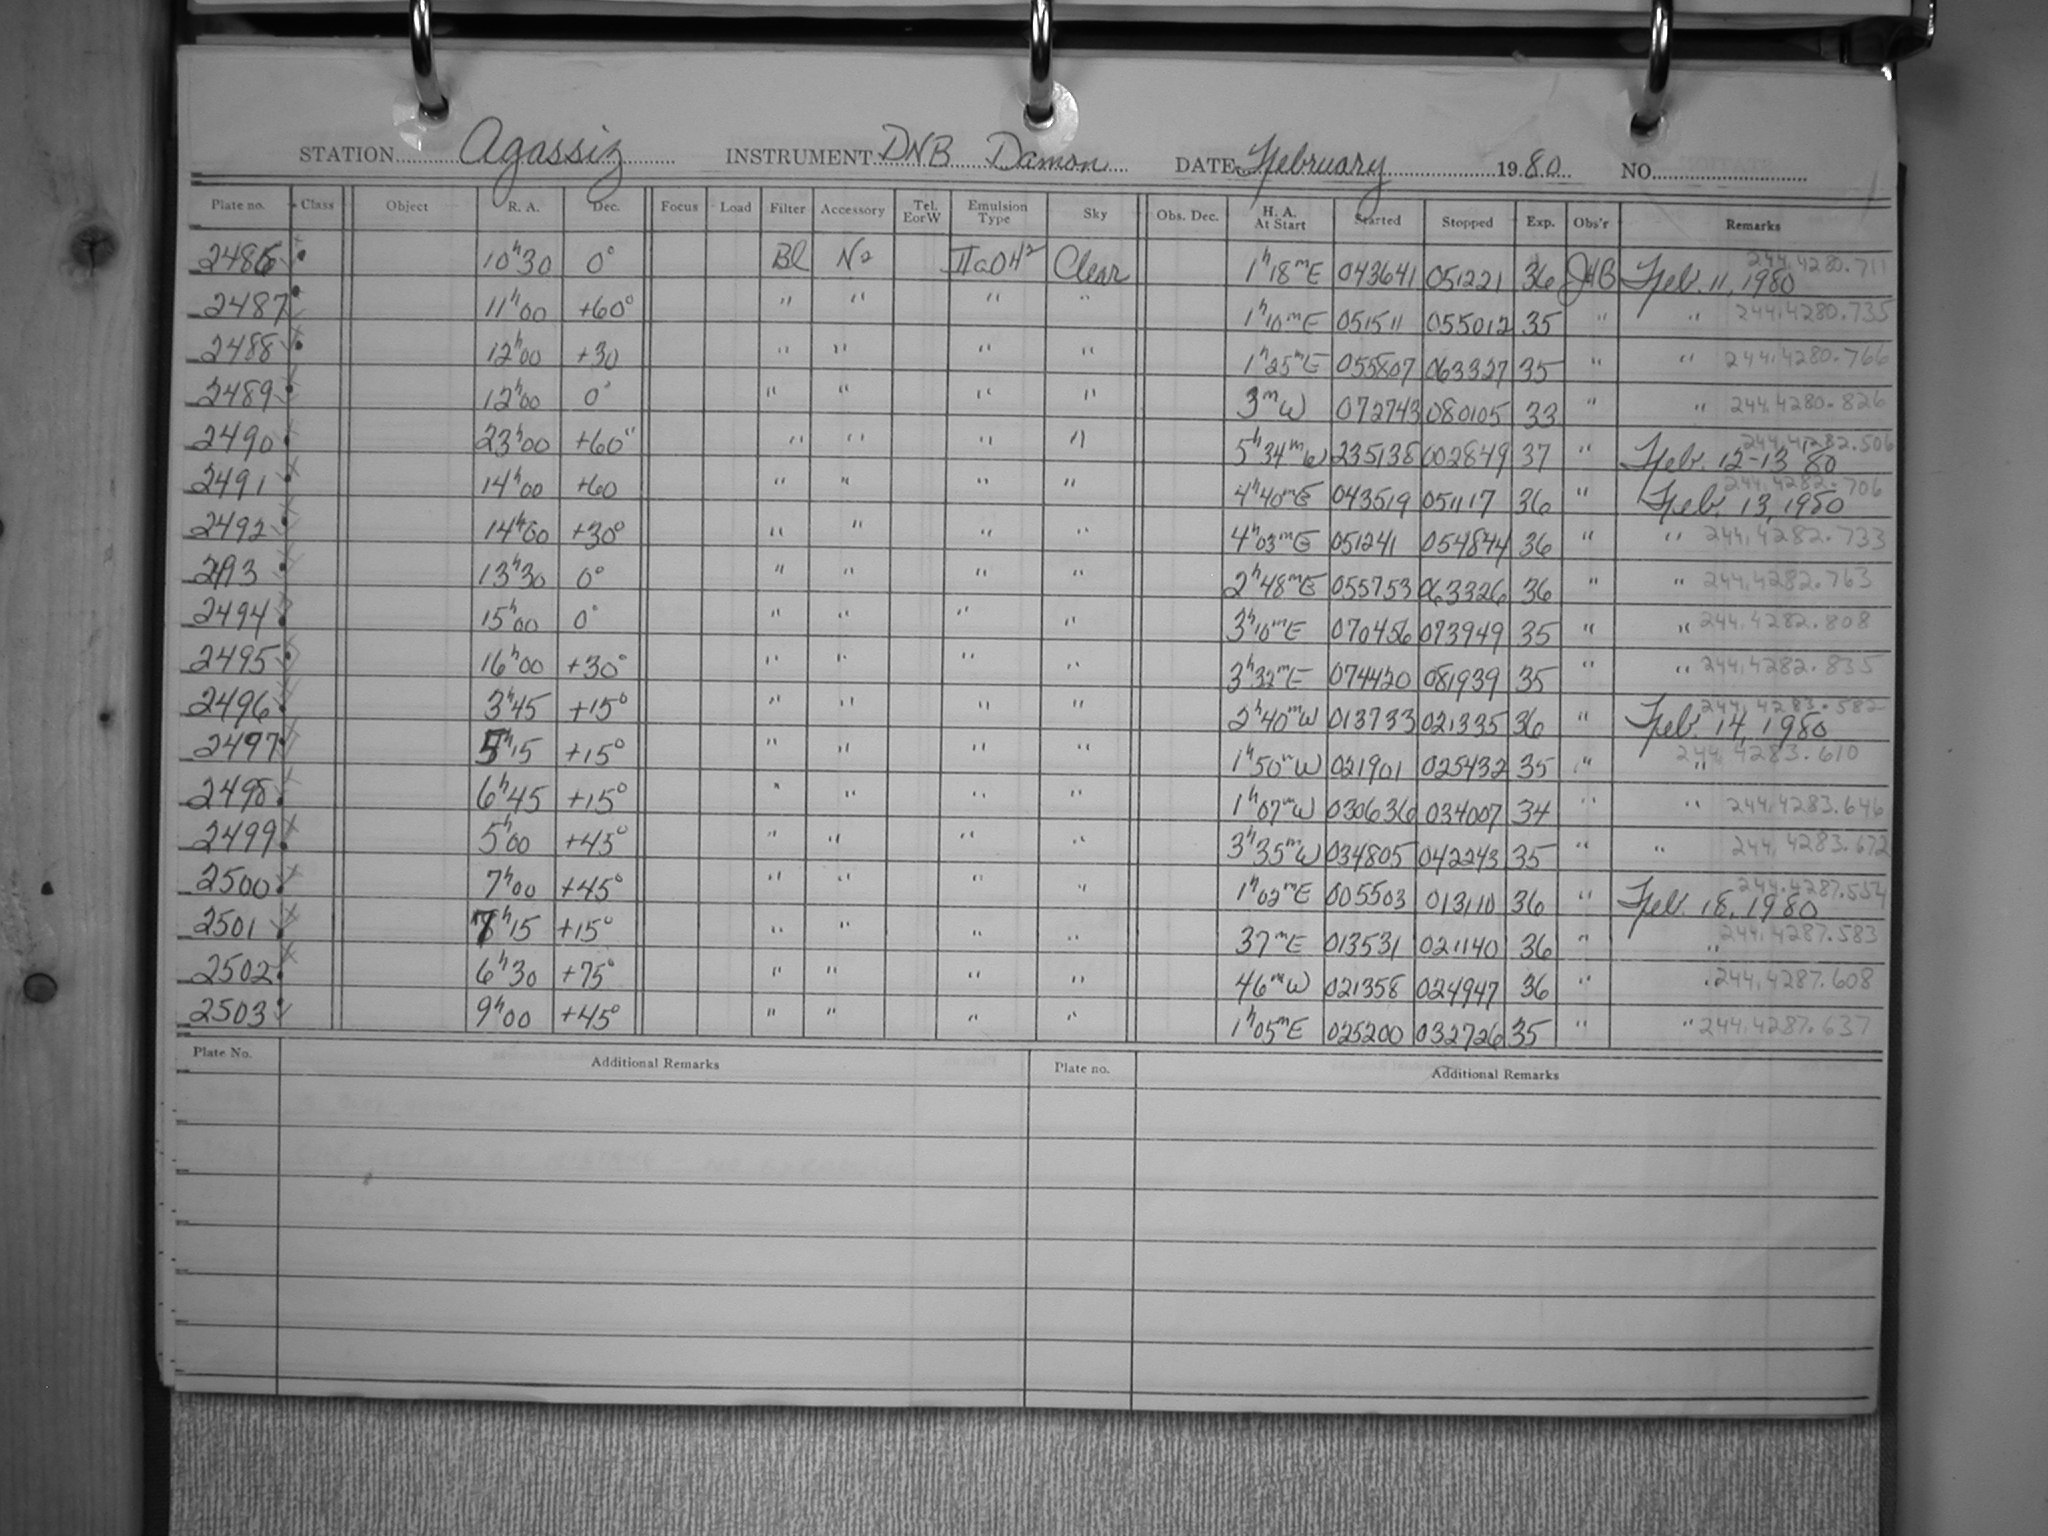 STATION Agassiz INSTRUMENT DNB Damon DATE February 1980 NO.
Plate no. Class Object R. A. Dec. Focus Load Filter Accessory Tel. EorW Emulsion Type Sky Obs. Dec. H. A. At Start Started Stopped Exp. Obs'r Remarks
2486 10h30 0° Bl N2 IIaOH2 Clear 1h18mE 043641 051221 36 JHB Feb. 11, 1980 244,4280.711
2487 11h00 +60° " " " " 1h10mE 051511 055012 35 " " 244,4280.735
2488 12h00 +30 " " " " 1h25mE 055807 063327 35 " 244,4280.766
2489 12h00 0° " " " " 3mW 072743 080105 33 " " 244,4280.826
2490 23h00 +60° " " " " 5h34mW 235138 002849 37 " Feb. 12-13 80 244,4282.506
2491 14h00 +60 " " " " 4h40mE 043519 051117 36 " Feb. 13, 1980 244,4282.706
2492 14h00 +30° " " " " 4h03mE 051241 054844 36 " " 244,4282.733
2493 13h30 0° " " " " 2h48mE 055753 063326 36 " " 244,4282.763
2494 15h00 0° " " " " 3h10mE 070456 073949 35 " " 244,4282.808
2495 16h00 +30° " " " " 3h32mE 074420 081939 35 " " 244,4282.835
2496 3h45 +15° " " " " 2h40mW 013733 021335 36 " Feb. 14, 1980 244,4283.582
2497 5h15 +15° " " " " 1h50mW 021901 025432 35 " " 244,4283.610
2498 6h45 +15° " " " " 1h07mW 030636 034007 34 " " 244,4283.646
2499 5h00 +45° " " " " 3h35mW 034805 042243 35 " " 244,4283.672
2500 7h00 +45° " " " " 1h02mE 005503 013110 36 " Feb. 18, 1980 244,4287.554
2501 7h15 +15° " " " " 37mE 013531 021140 36 " " 244,4287.583
2502 6h30 +75° " " " " 46mW 021358 024947 36 " " 244,4287.608
2503 9h00 +45° " " " " 1h05mE 025200 032726 35 " " 244,4287.637
Plate No. Additional Remarks Plate no. Additional Remarks